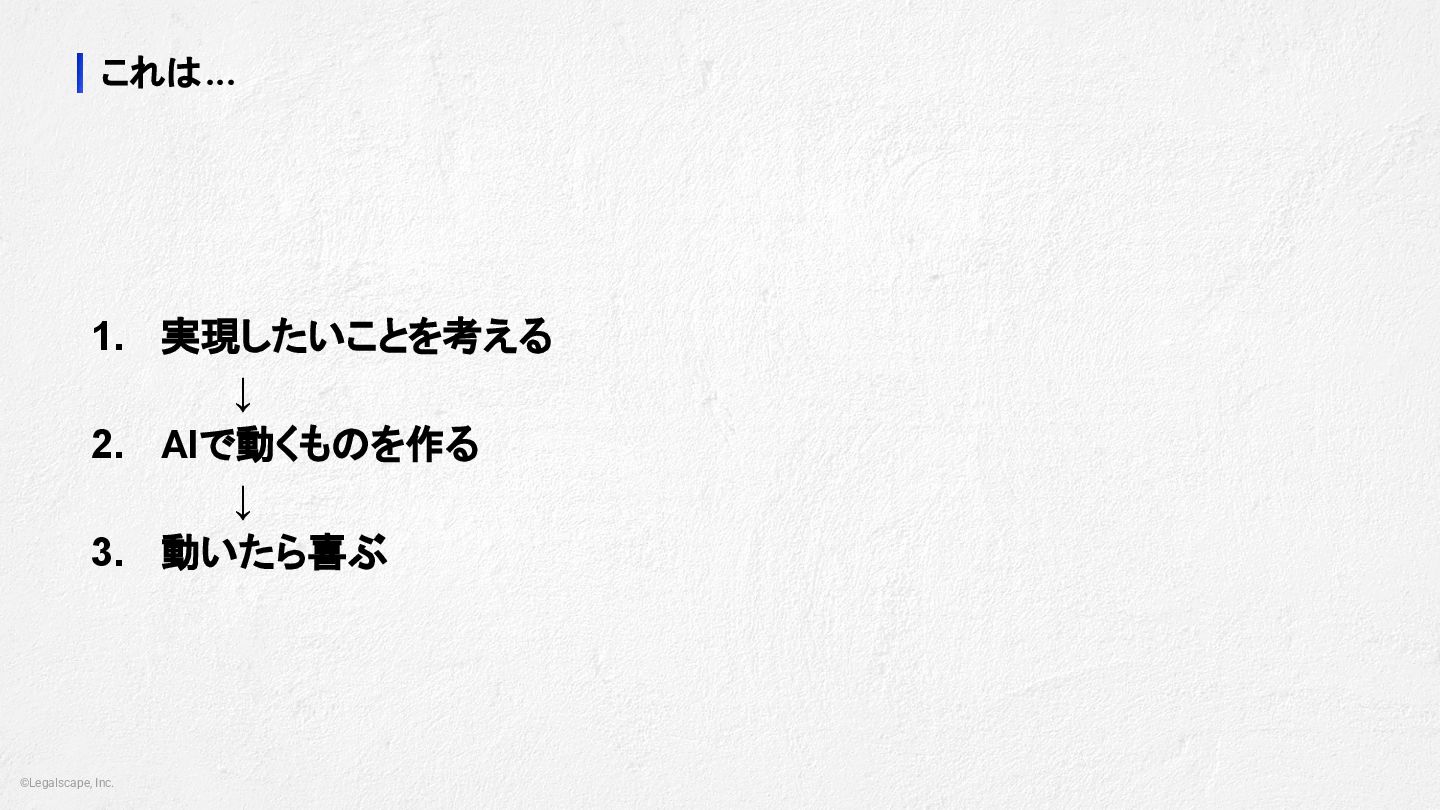 これは...
1. 実現したいことを考える
↓
2. AIで動くものを作る
↓
3. 動いたら喜ぶ
©Legalscape, Inc.